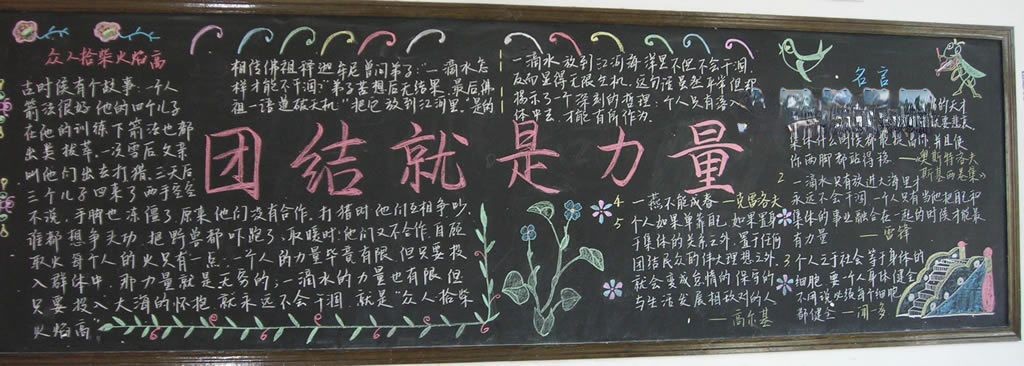 众人拾柴火焰高
古时候有个故事:一个人
箭法很好,他的四个儿子
在他的训练下箭法也都
出类拔萃。一次雪后父亲
叫他们出去打猎,三天后
三个儿子回来了两手空空
不说,手脚也冻僵了原来他们没有合作,打猎时他们互相争吵
谁都想争头功,把野兽都吓跑了,取暖时他们又不合作,自顾
取火每个人的火只有一点。一个人的力量毕竟有限,但只要投
入群体中,那力量就是无穷的;一滴水的力量也有限,但
只要投入大海的怀抱就永远不会干涸,就是“众人拾柴
火焰高”
相传佛祖释迦牟尼曾问弟子:“一滴水怎
样才能不干涸”弟子苦想后无结果,最后佛
祖一语道破天机:“把它放到江河里。”是的
一滴水放到江河海洋里不但不会干涸,
反而里得无限生机。这句话虽然平常但却
揭示了一个深刻的哲理:个人只有落入
体中去,才能有所作为。
团结就是力量
名言
集体什么时候都能提高你,并且使
你两脚都站得稳。——奥斯特洛夫
斯基
2 一滴水只有放进大海里才
永远不会干涸,一个人只有当他把自己和
集体的事业融合在一起的时候才能最
有力量 ——雷锋
3 个人之于社会等于身体的
细胞,要一个人身体健全
不用说必须每个细胞
都健全——闻一多
4 一燕不能成春——克雷洛夫
5 个人如果单靠自己,如果置身
于集体的关系之外,置于任何
团结民众的伟大理想之外,
就会变成怠惰的、保守的
与生活发展相敌对的人
——高尔基